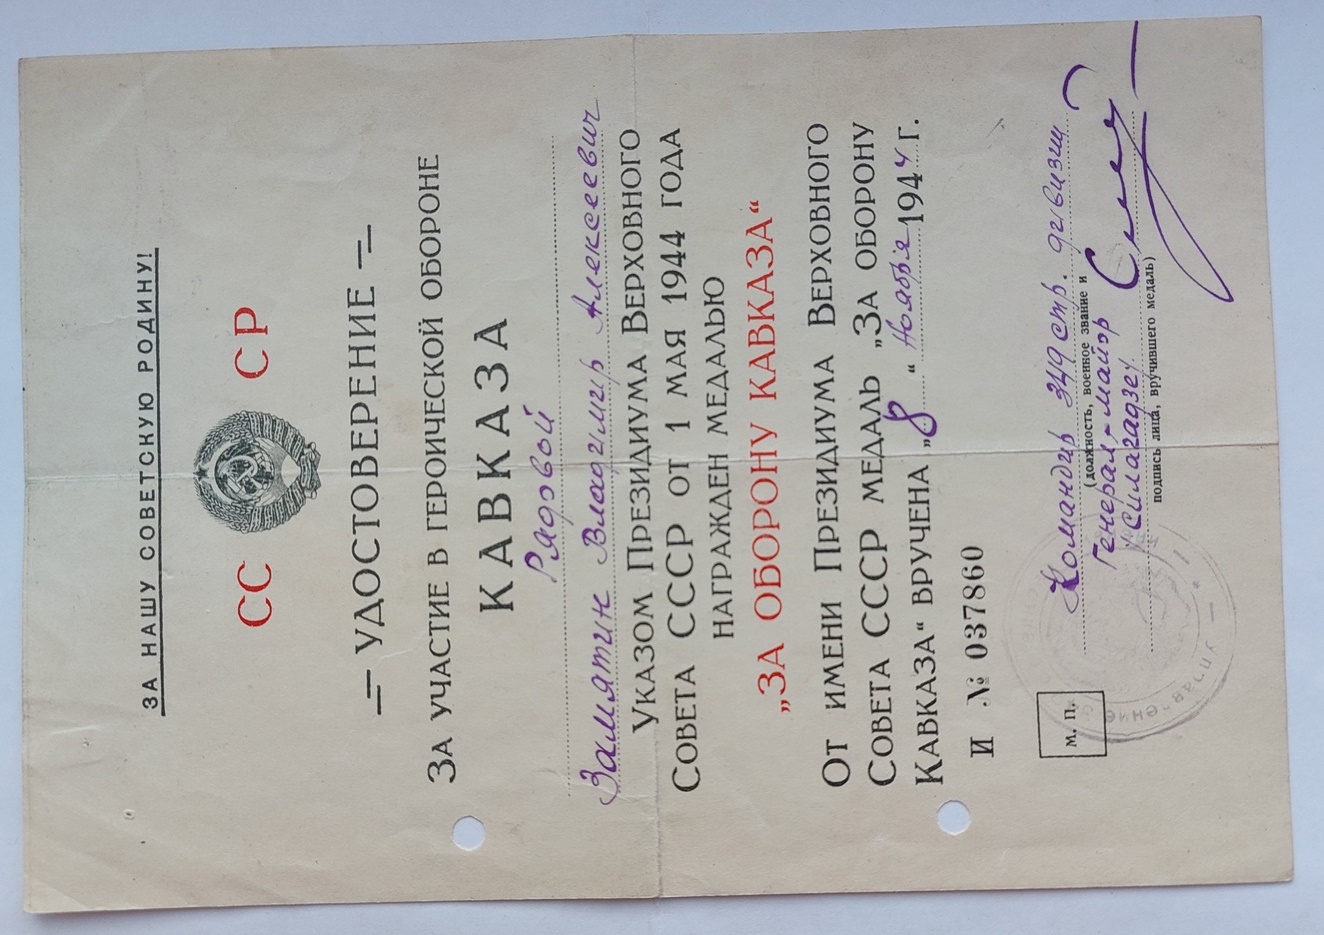 ЗА НАШУ СОВЕТСКУЮ РОДИНУ!
СС СР
УДОСТОВЕРЕНИЕ
ЗА УЧАСТИЕ В ГЕРОИЧЕСКОЙ ОБОРОНЕ
КАВКАЗА
Рядовой
Замятин Владимир Алексеевич
УКАЗОМ ПРЕЗИДИУМА ВЕРХОВНОГО
СОВЕТА СССР ОТ 1 МАЯ 1944 ГОДА
НАГРАЖДЕН МЕДАЛЬЮ
„ЗА ОБОРОНУ КАВКАЗА“
ОТ ИМЕНИ ПРЕЗИДИУМА ВЕРХОВНОГО
СОВЕТА СССР МЕДАЛЬ „ЗА ОБОРОНУ
КАВКАЗА“ ВРУЧЕНА „8“ Ноября 1944 г.
И № 037860
М. П.
Командир 349 стр. дивизии
(должность, военное звание и
Генерал-майор
/Симагадзе/
подпись лица, вручившего медаль)